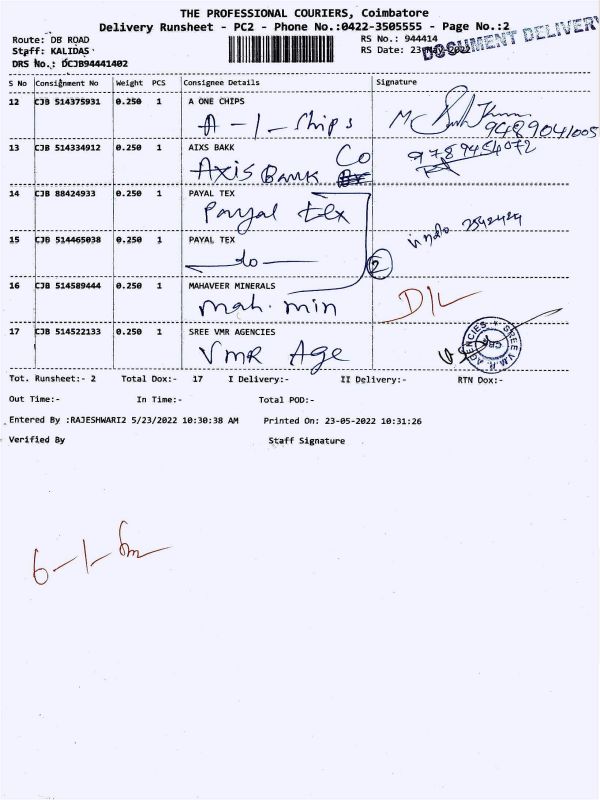 THE PROFESSIONAL COURIERS, Coimbatore
Delivery Runsheet - PC2 - Phone No.:0422-3505555 - Page No.:2
Route: DB ROAD RS No.: 944414
Staff: KALIDAS RS Date: 23-May-2022
DOCUMENT DELIVERY
DRS No.: DCJB94441402
S No Consignment No Weight PCS Consignee Details Signature
12 CJB 514375931 0.250 1 A ONE CHIPS
A - 1 - Ships
9489041005
13 CJB 514334912 0.250 1 AIXS BAKK
Axis Bank Co
9789454072
14 CJB 88424933 0.250 1 PAYAL TEX
Payal tex
15 CJB 514465038 0.250 1 PAYAL TEX
do
2
16 CJB 514589444 0.250 1 MAHAVEER MINERALS
mah. min
D/L
17 CJB 514522133 0.250 1 SREE VMR AGENCIES
VMR Age
SREE V.M.R. AGENCIES
CBE
Tot. Runsheet:- 2 Total Dox:- 17 I Delivery:- II Delivery:- RTN Dox:-
Out Time:- In Time:- Total POD:-
Entered By :RAJESHWARI2 5/23/2022 10:30:38 AM Printed On: 23-05-2022 10:31:26
Verified By Staff Signature
6-1-